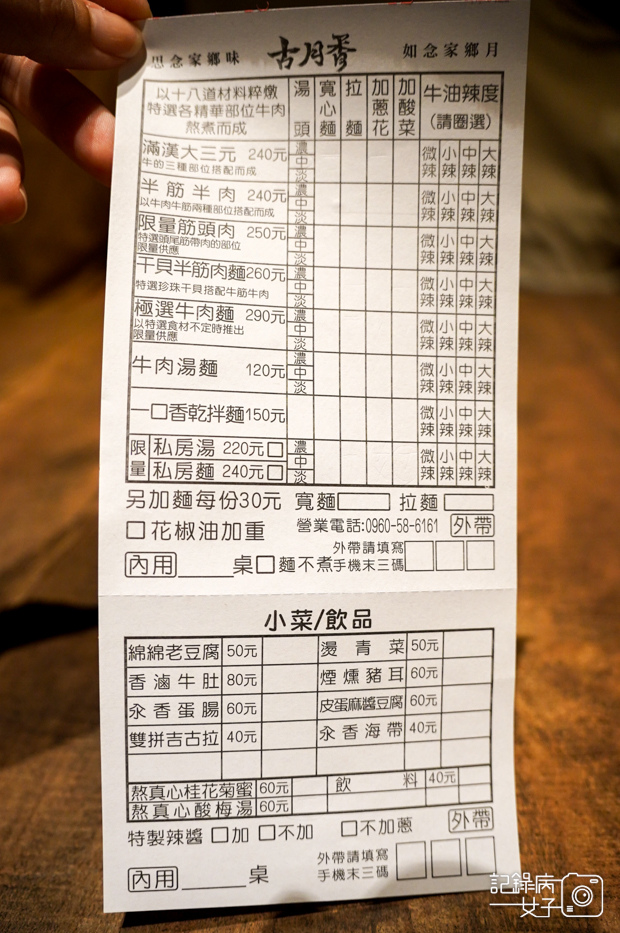 思念家鄉味 古月香 如念家鄉月
以十八道材料粹燉
特選各精華部位牛肉
熬煮而成
湯頭 寬心麵 拉麵 加蔥花 加酸菜 牛油辣度
(請圈選)
滿漢大三元 240元 濃 中 淡 微辣 小辣 中辣 大辣
牛的三種部位搭配而成
半筋半肉 240元 濃 中 淡 微辣 小辣 中辣 大辣
以牛肉牛筋兩種部位搭配而成
限量筋頭肉 250元 濃 中 淡 微辣 小辣 中辣 大辣
特選頭尾筋帶肉的部位
限量供應
干貝半筋肉麵260元 濃 中 淡 微辣 小辣 中辣 大辣
特選珍珠干貝搭配牛筋牛肉
極選牛肉麵 290元 濃 中 淡 微辣 小辣 中辣 大辣
以特選食材不定時推出
限量供應
牛肉湯麵 120元 濃 中 淡 微辣 小辣 中辣 大辣
一口香乾拌麵150元 微辣 小辣 中辣 大辣
限量 私房湯 220元 濃 中 淡 微辣 小辣 中辣 大辣
私房麵 240元
另加麵每份30元 寬麵 拉麵
花椒油加重 營業電話:0960-58-6161 外帶
內用____桌 麵不煮 外帶請填寫
手機末三碼
小菜/飲品
綿綿老豆腐 50元 燙青菜 50元
香滷牛肚 80元 煙燻豬耳 60元
永香蛋腸 60元 皮蛋麻醬豆腐 60元
雙拼吉古拉 40元 永香海帶 40元
熬真心桂花菊蜜 60元 飲料 40元
熬真心酸梅湯 60元
特製辣醬 加 不加 不加蔥 外帶
內用____桌 外帶請填寫
手機末三碼
記錄病
女子